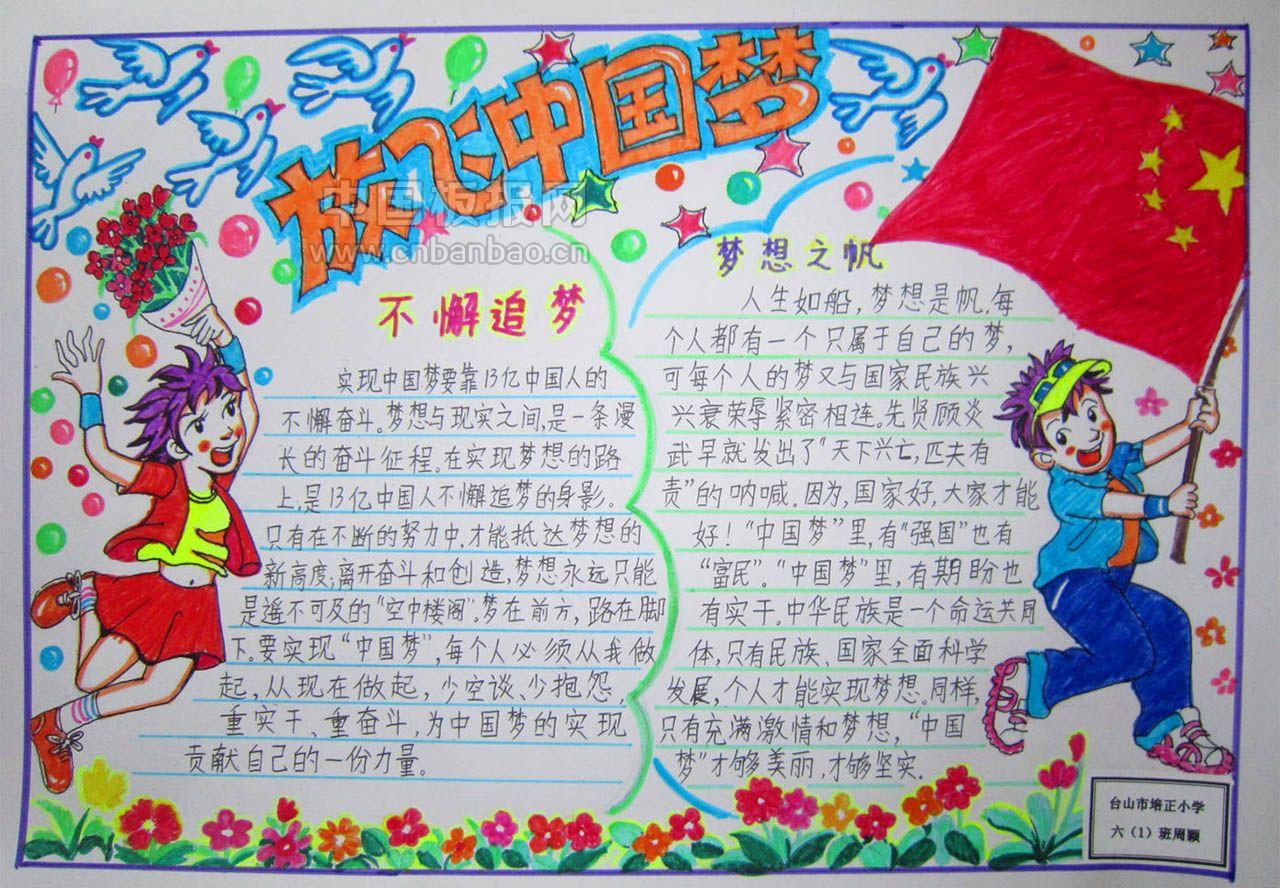 放飞中国梦
中国板报网
www.cnbanbao.cn
不懈追梦
实现中国梦要靠13亿中国人的
不懈奋斗。梦想与现实之间,是一条漫
长的奋斗征程。在实现梦想的路
上,是13亿中国人不懈追梦的身影。
只有在不断的努力中,才能抵达梦想的
新高度;离开奋斗和创造,梦想永远只能
是遥不可及的“空中楼阁”。梦在前方,路在脚
下。要实现“中国梦”,每个人必须从我做
起,从现在做起,少空谈、少抱怨,
重实干、重奋斗,为中国梦的实现
贡献自己的一份力量。
梦想之帆
人生如船,梦想是帆,每
个人都有一个只属于自己的梦,
可每个人的梦又与国家民族兴
兴衰荣辱紧密相连。先贤顾炎
武早就发出了“天下兴亡,匹夫有
责”的呐喊。因为,国家好,大家才能
好！“中国梦”里,有“强国”也有
“富民”。“中国梦”里,有期盼也
有实干。中华民族是一个命运共同
体,只有民族、国家全面科学
发展,个人才能实现梦想。同样,
只有充满激情和梦想,“中国
梦”才够美丽,才够坚实.
台山市培正小学
六（1）班周颖